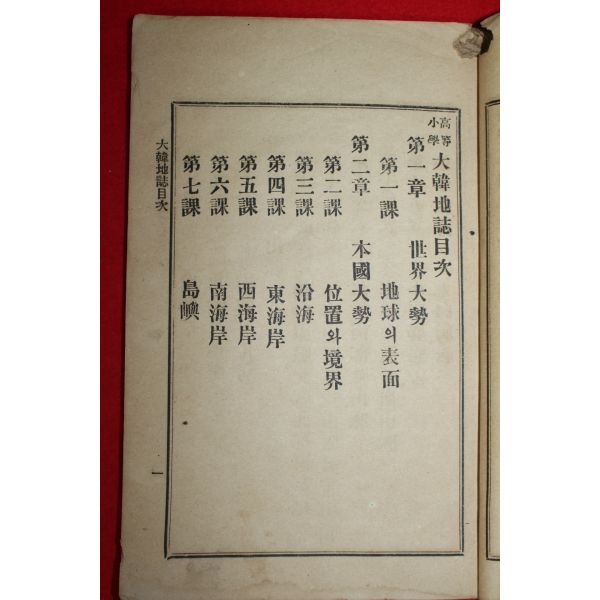 高等小學大韓地誌目次
第一章 世界大勢
第一課 地球의表面
第二章 本國大勢
第二課 位置와境界
第三課 沿海
第四課 東海岸
第五課 西海岸
第六課 南海岸
第七課 島嶼
大韓地誌目次
一